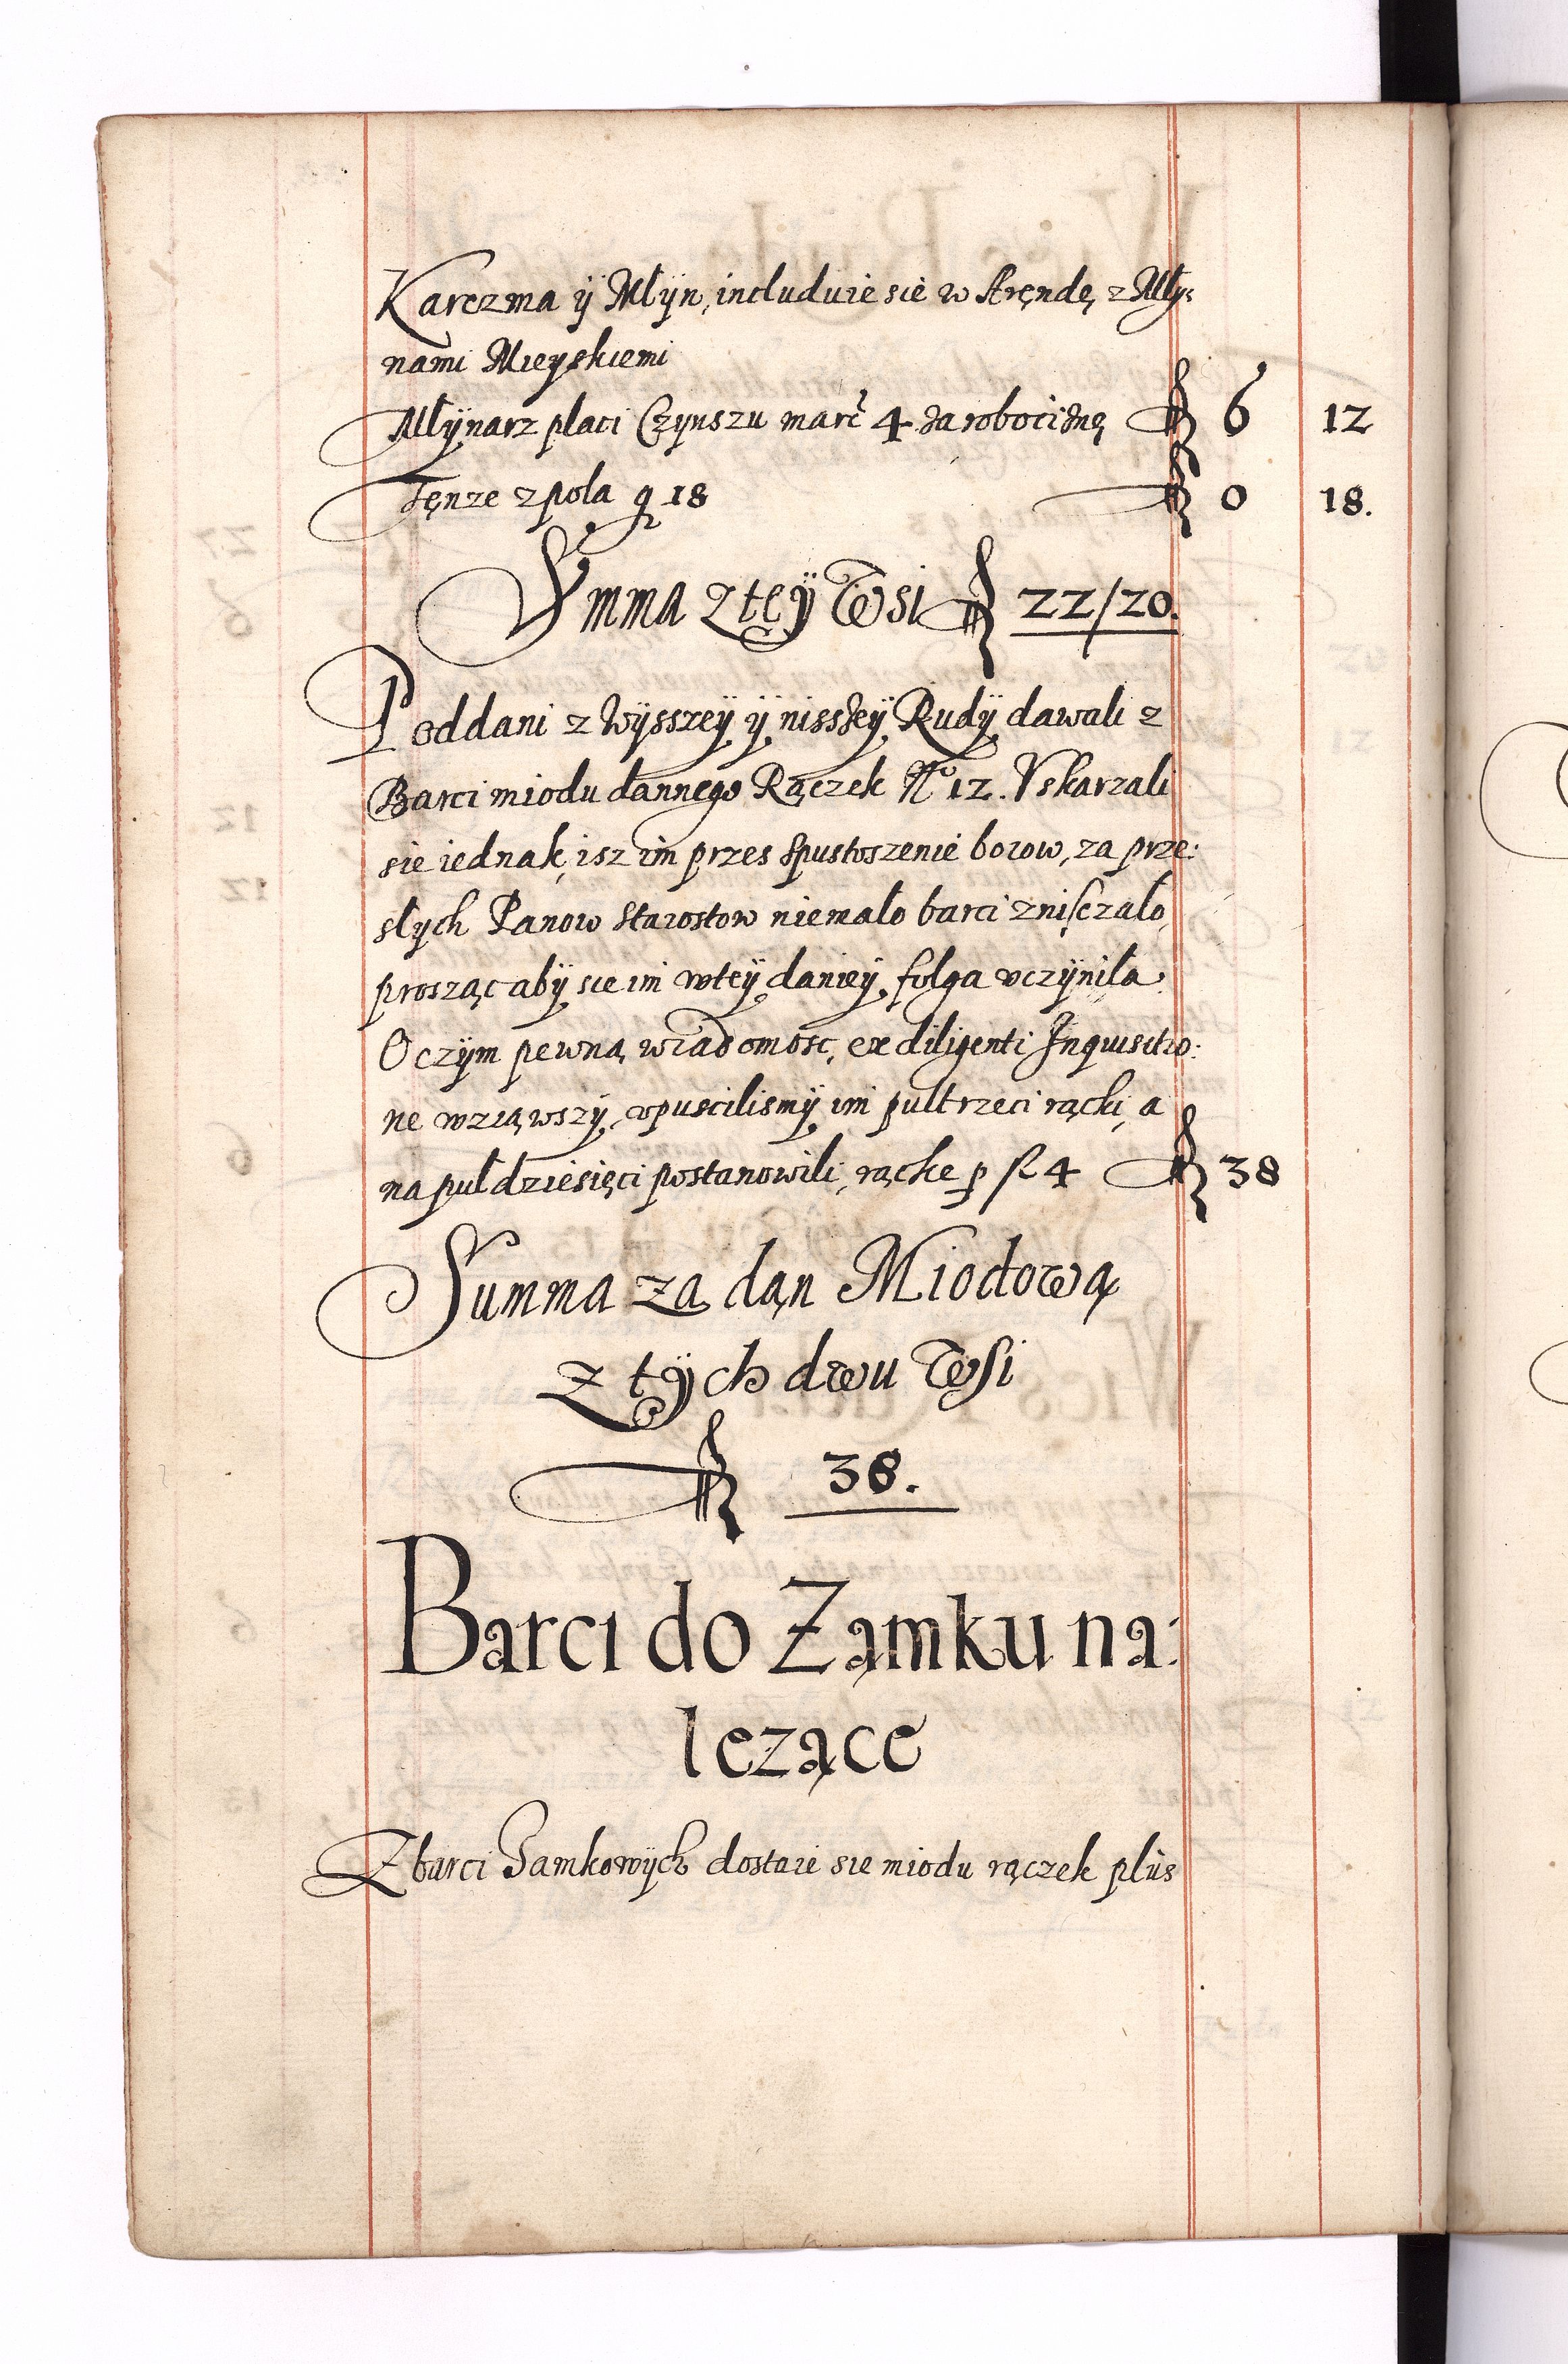 Karczma ÿ Młÿn, includuie sie w Aręndę z Mły:
nami Mieyskiemi
Młÿnarz płaci Czÿnszu marc 4 za robociznę fl 6 12
Tęnze z pola g 18 fl 0 18.
Summa z teÿ Wsi fl 22/20.
Poddani z Wÿsszeÿ ÿ nisszeÿ Rudÿ dawali z
Barci miodu dannego Rączek No 12. Vskarzali
sie iednak, isz im przes spustoszenie borow, za prze:
słych Panow Starostow niemało barci zniſczało,
prosząc abÿ sie im w teÿ danieÿ folga vczÿniła.
O czÿm pewną wiadomosc, ex diligenti Inquisitio:
ne wziąwszÿ, opuscilismÿ im pułtrzeci rącki, a
na puł dziesięci postanowili, rącke p fl 4 fl 38
Summa za dąn Miodową
z tÿch dwu Wſi
fl 38.
Barci do Zamku na:
lezące
Z barci Zamkowÿch dostaie sie miodu rączek plus